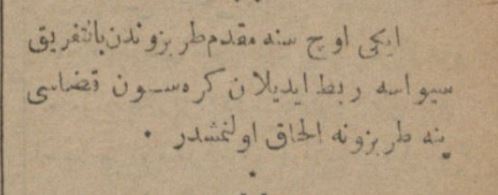 ایكی اوچ سنه مقدم طربزوندن بالتفریق
سیواسه ربط ایدیلان كره‌سون قضاسی
ینه طربزونه الحاق اولنمشدر .